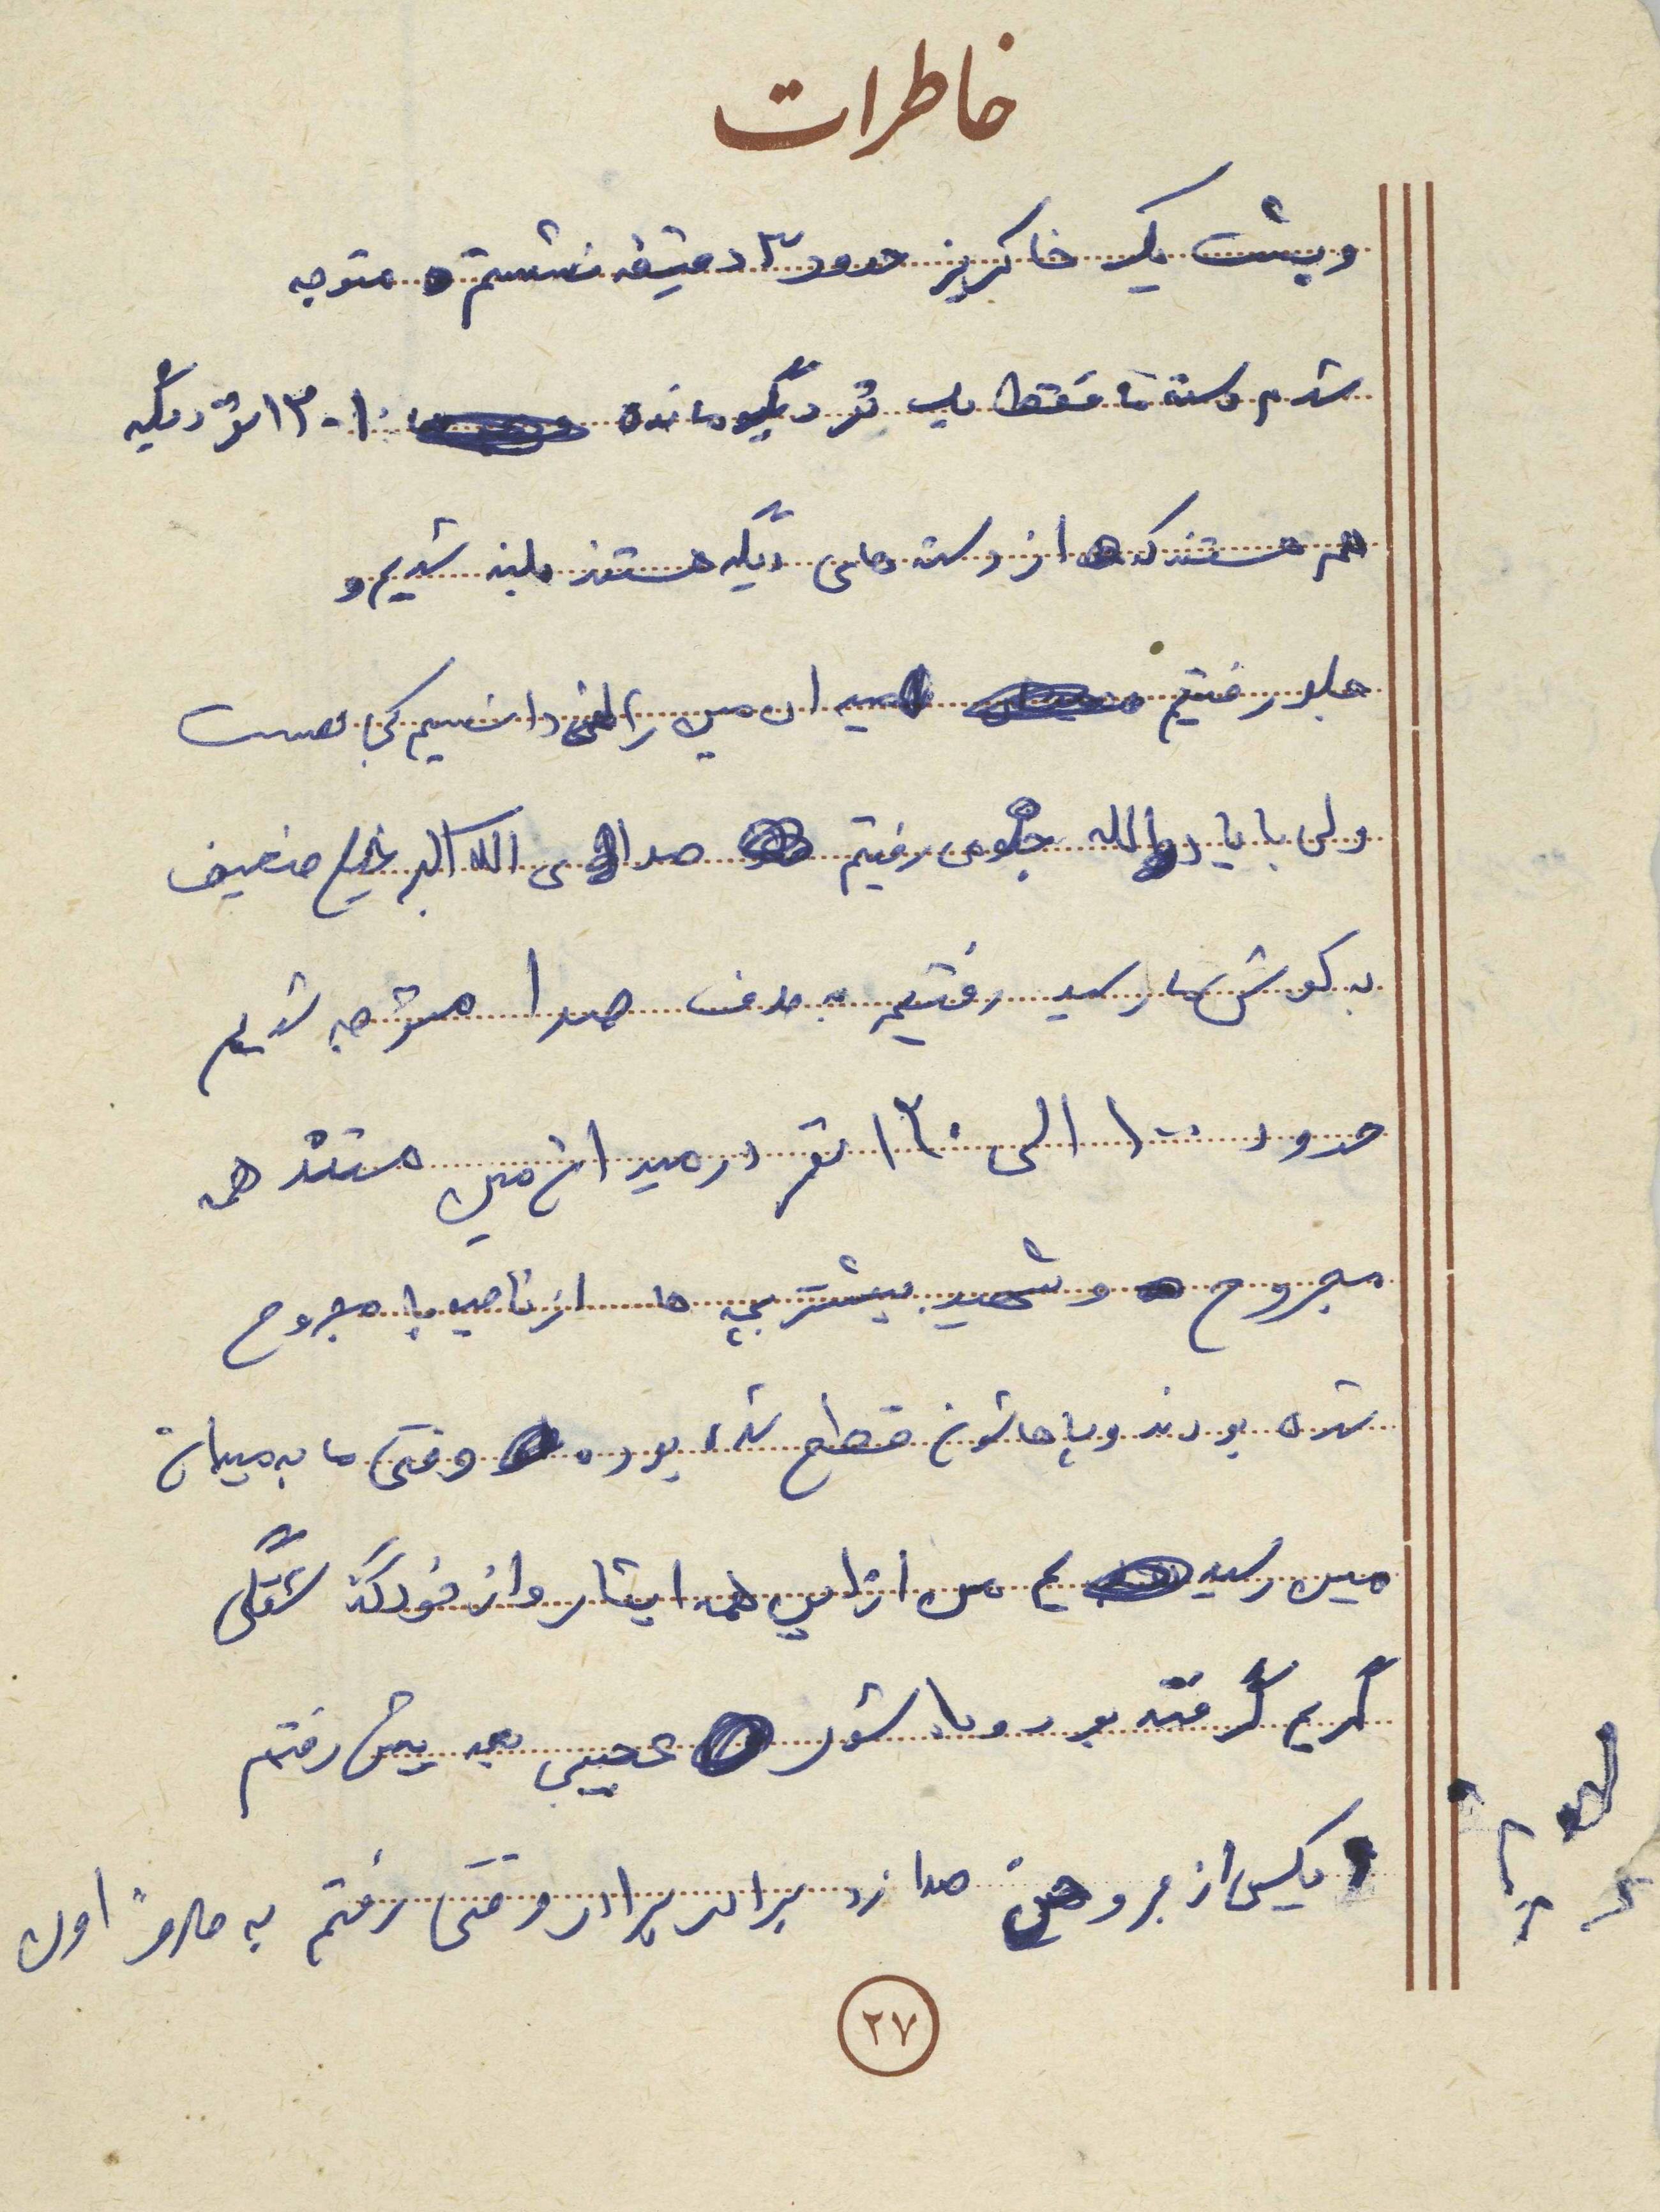 خاطرات
و پشت یک خاکریز حدود ۳ دقیقه نشستم و متوجه
شدم دسته ما فقط یک نفر دیگه مانده ۱۰-۱۳ نفر دیگه
هم هستند که از دسته های دیگه هستند بلند شدیم و
جلو رفتیم میدان مین را نمی دانسیم کجاست
ولی با یاد الله جلو می رفتیم صدای الله اکبر خیلی ضعیف
به گوش ما رسید رفتیم به طرف صدا متوجه شدیم
حدود ۱۰۰ الی ۱۲۰ نفر در میدان مین هستند همه
مجروح و شهید بیشتر بچه ها از ناحیه پا مجروح
شده بودند و پاهاشون قطع شده بوده وقتی ما به میدان
مین رسیدیم من از این همه ایثار و از خود گذشتگی
گریم گرفته بود و با شور عجیبی به پیش رفتم
یکسی از مجروحین صدا زد برادر برادر وقتی رفتم به طرف اون
۲۷